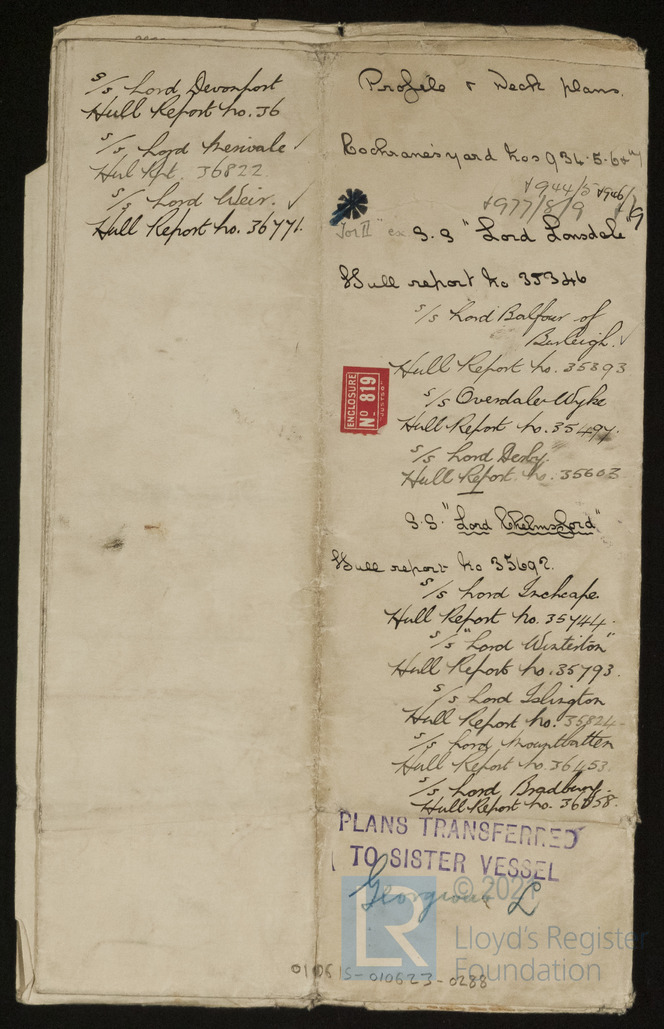 s/s Lord Devonport
Hull Report no. 36
s/s Lord Merivale ✓
Hull Rpt. 36822
s/s Lord Weir. ✓
Hull Report no. 36771.
Profile & Deck plans.
Cochrane's yard Nos 934-5-6
+944/5 +946/7
+977/8/9
Jon II ex S.S "Lord Lonsdale"
Hull report No 35346
s/s Lord Balfour of
Burleigh. ✓
Hull Report no. 35393
ENCLOSURE
No 819
s/s Overdale Wyke
Hull Report no. 35497.
s/s Lord Derby.
Hull Report no. 35603
S.S. "Lord Chelmsford"
Hull report No 35692.
s/s Lord Inchcape.
Hull Report no. 35744.
s/s "Lord Winterton"
Hull Report no. 35793.
s/s Lord Islington
Hull Report no. 35824
s/s Lord Mountbatten
Hull Report no. 36453.
s/s Lord Bradbury.
Hull Report no. 36558.
PLANS TRANSFERRED
TO SISTER VESSEL
© 2021
LR
Lloyd's Register
Foundation
010615-010623-0288